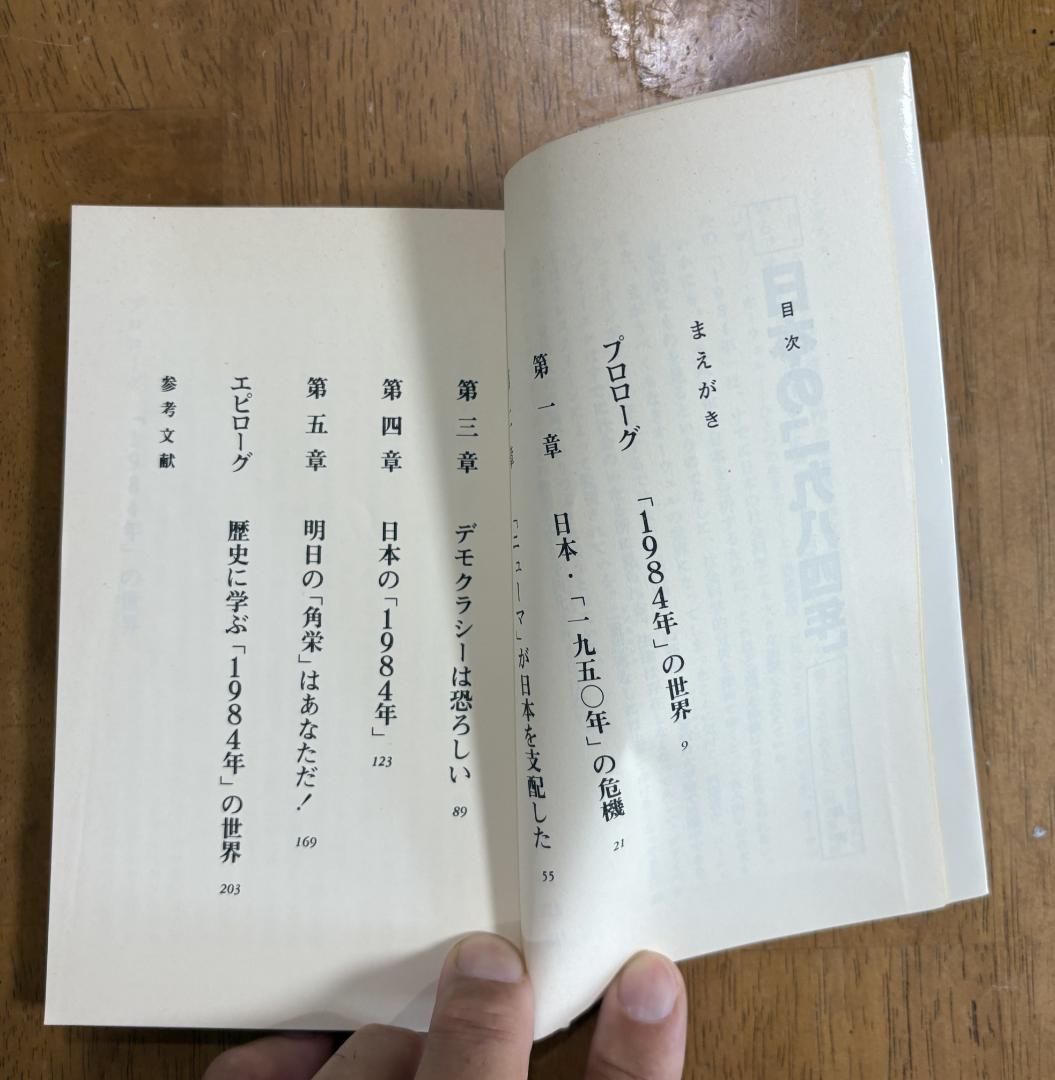 目次
まえがき
プロローグ 「1984年」の世界 9
第一章 日本・「一九五〇年」の危機 21
「ニューマ」が日本を支配した 55
第三章 デモクラシーは恐ろしい 89
第四章 日本の「1984年」 123
第五章 明日の「角栄」はあなただ！ 169
エピローグ 歴史に学ぶ「1984年」の世界 203
参考文献